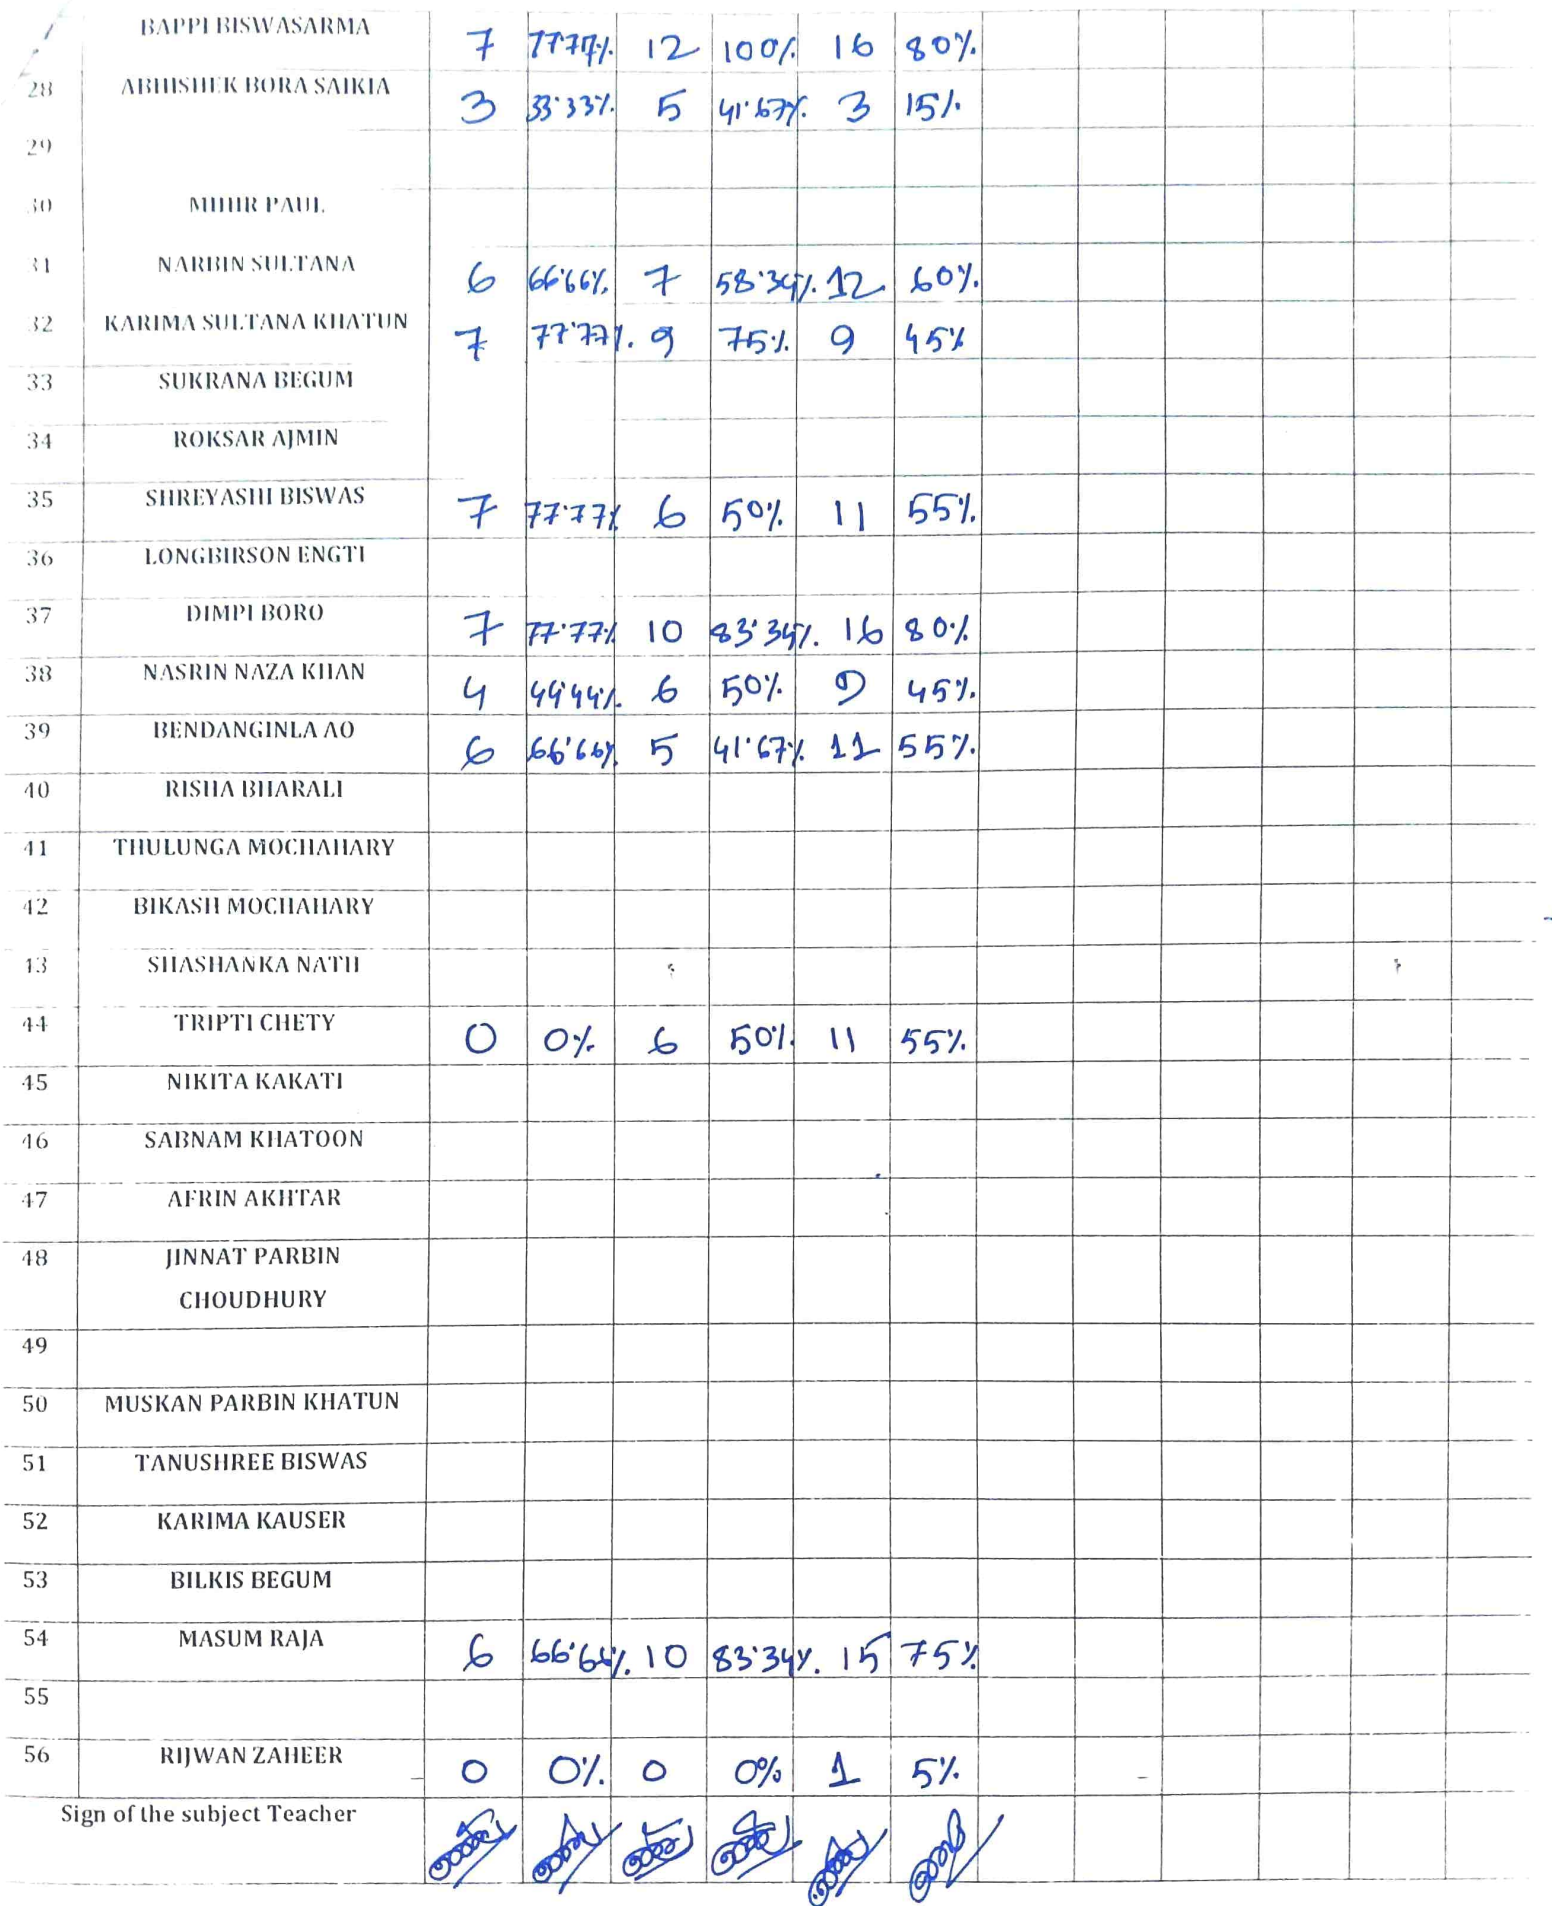 BAPPI BISWASARMA 7 77.77% 12 100% 16 80%
28 ABHISHEK BORA SAIKIA 3 33.33% 5 41.67% 3 15%
29
30 MIHIR PAUL
31 NARBIN SULTANA 6 66.66% 7 58.34% 12 60%
32 KARIMA SULTANA KHATUN 7 77.77% 9 75% 9 45%
33 SUKRANA BEGUM
34 ROKSAR AJMIN
35 SHREYASHI BISWAS 7 77.77% 6 50% 11 55%
36 LONGBIRSON ENGTI
37 DIMPI BORO 7 77.77% 10 83.34% 16 80%
38 NASRIN NAZA KHAN 4 44.44% 6 50% 9 45%
39 BENDANGINLA AO 6 66.66% 5 41.67% 11 55%
40 RISHA BHARALI
41 THULUNGA MOCHAHARY
42 BIKASH MOCHAHARY
43 SHASHANKA NATH
44 TRIPTI CHETY 0 0% 6 50% 11 55%
45 NIKITA KAKATI
46 SABNAM KHATOON
47 AFRIN AKHTAR
48 JINNAT PARBIN
CHOUDHURY
49
50 MUSKAN PARBIN KHATUN
51 TANUSHREE BISWAS
52 KARIMA KAUSER
53 BILKIS BEGUM
54 MASUM RAJA 6 66.66% 10 83.34% 15 75%
55
56 RIJWAN ZAHEER 0 0% 0 0% 1 5%
Sign of the subject Teacher